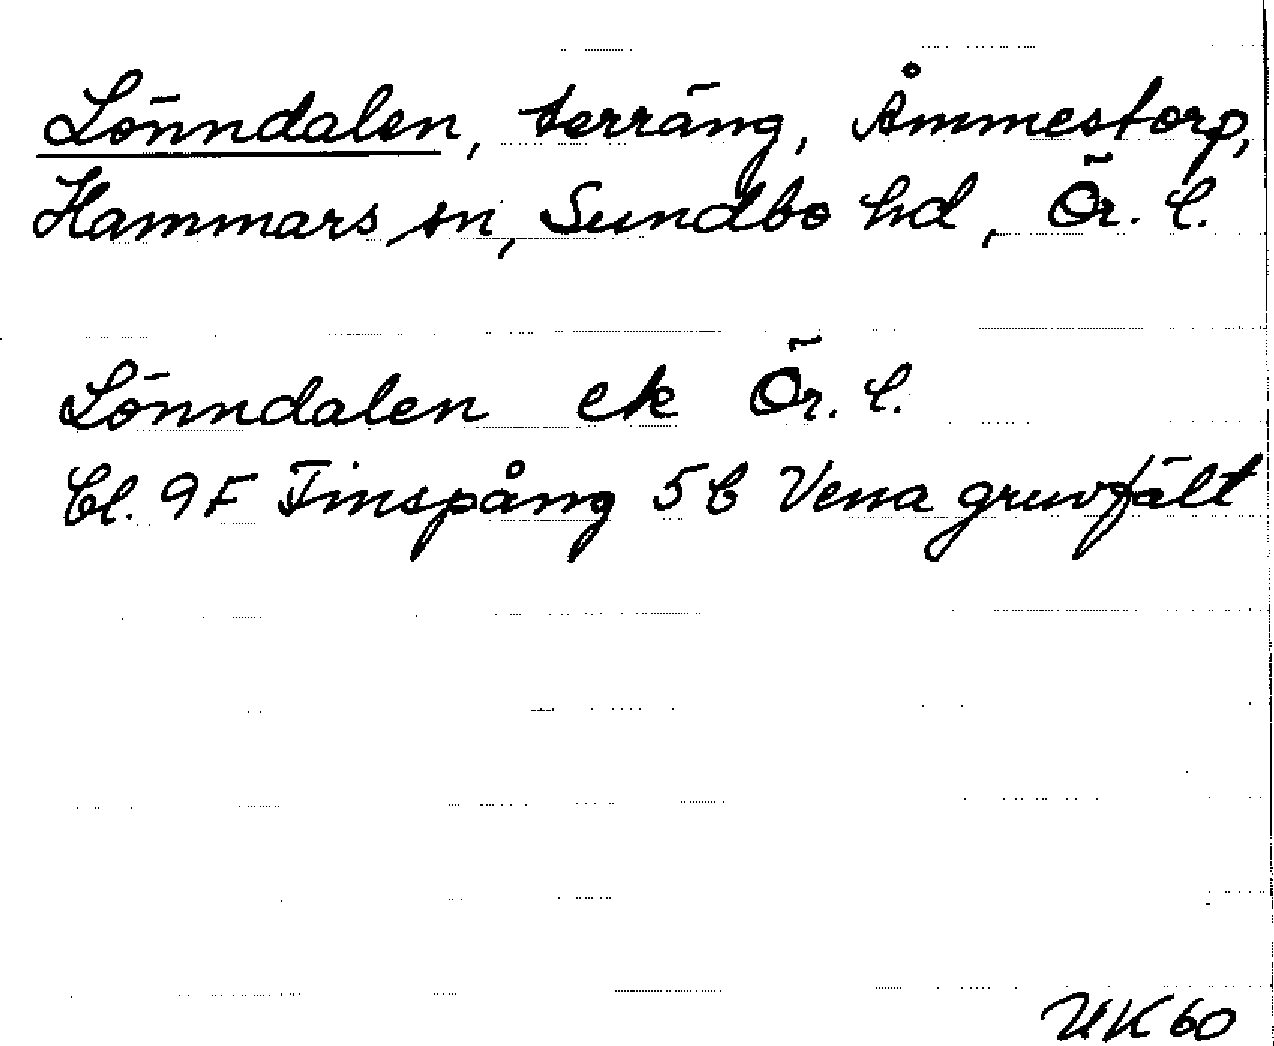 Lönndalen, terräng, Åmmestorp,
Hammars sn, Sundbo hd, Ör. l.
Lönndalen ek Ör. l.
Bl. 9F Finspång 5b Vena gruvfält
UK 60